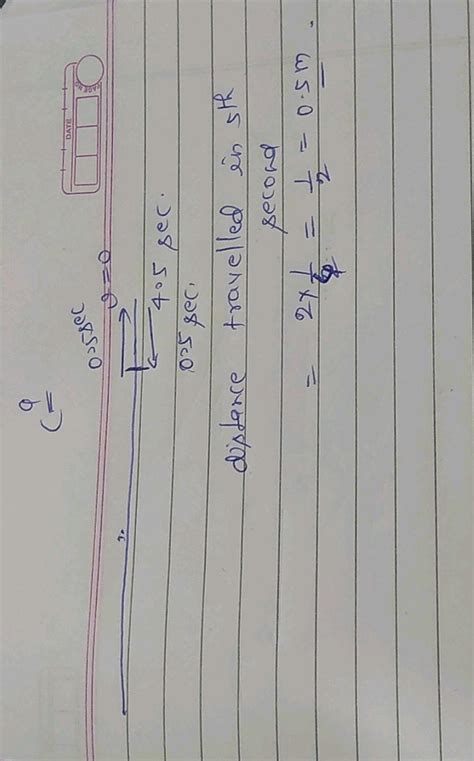 DATE
0.5 sec v=0
4.5 sec.
0.5 sec.
distance travelled in 5th
second
= 2 × 1/4 = 1/2 = 0.5 m.